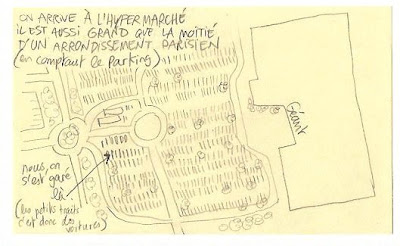 ON ARRIVE À L'HYPERMARCHÉ
IL EST AUSSI GRAND QUE LA MOITIÉ
D'UN ARRONDISSEMENT PARISIEN
(en comptant le parking)
Géant
nous, on
s'est garé
là
(les petits traits
c'est donc des
voitures)